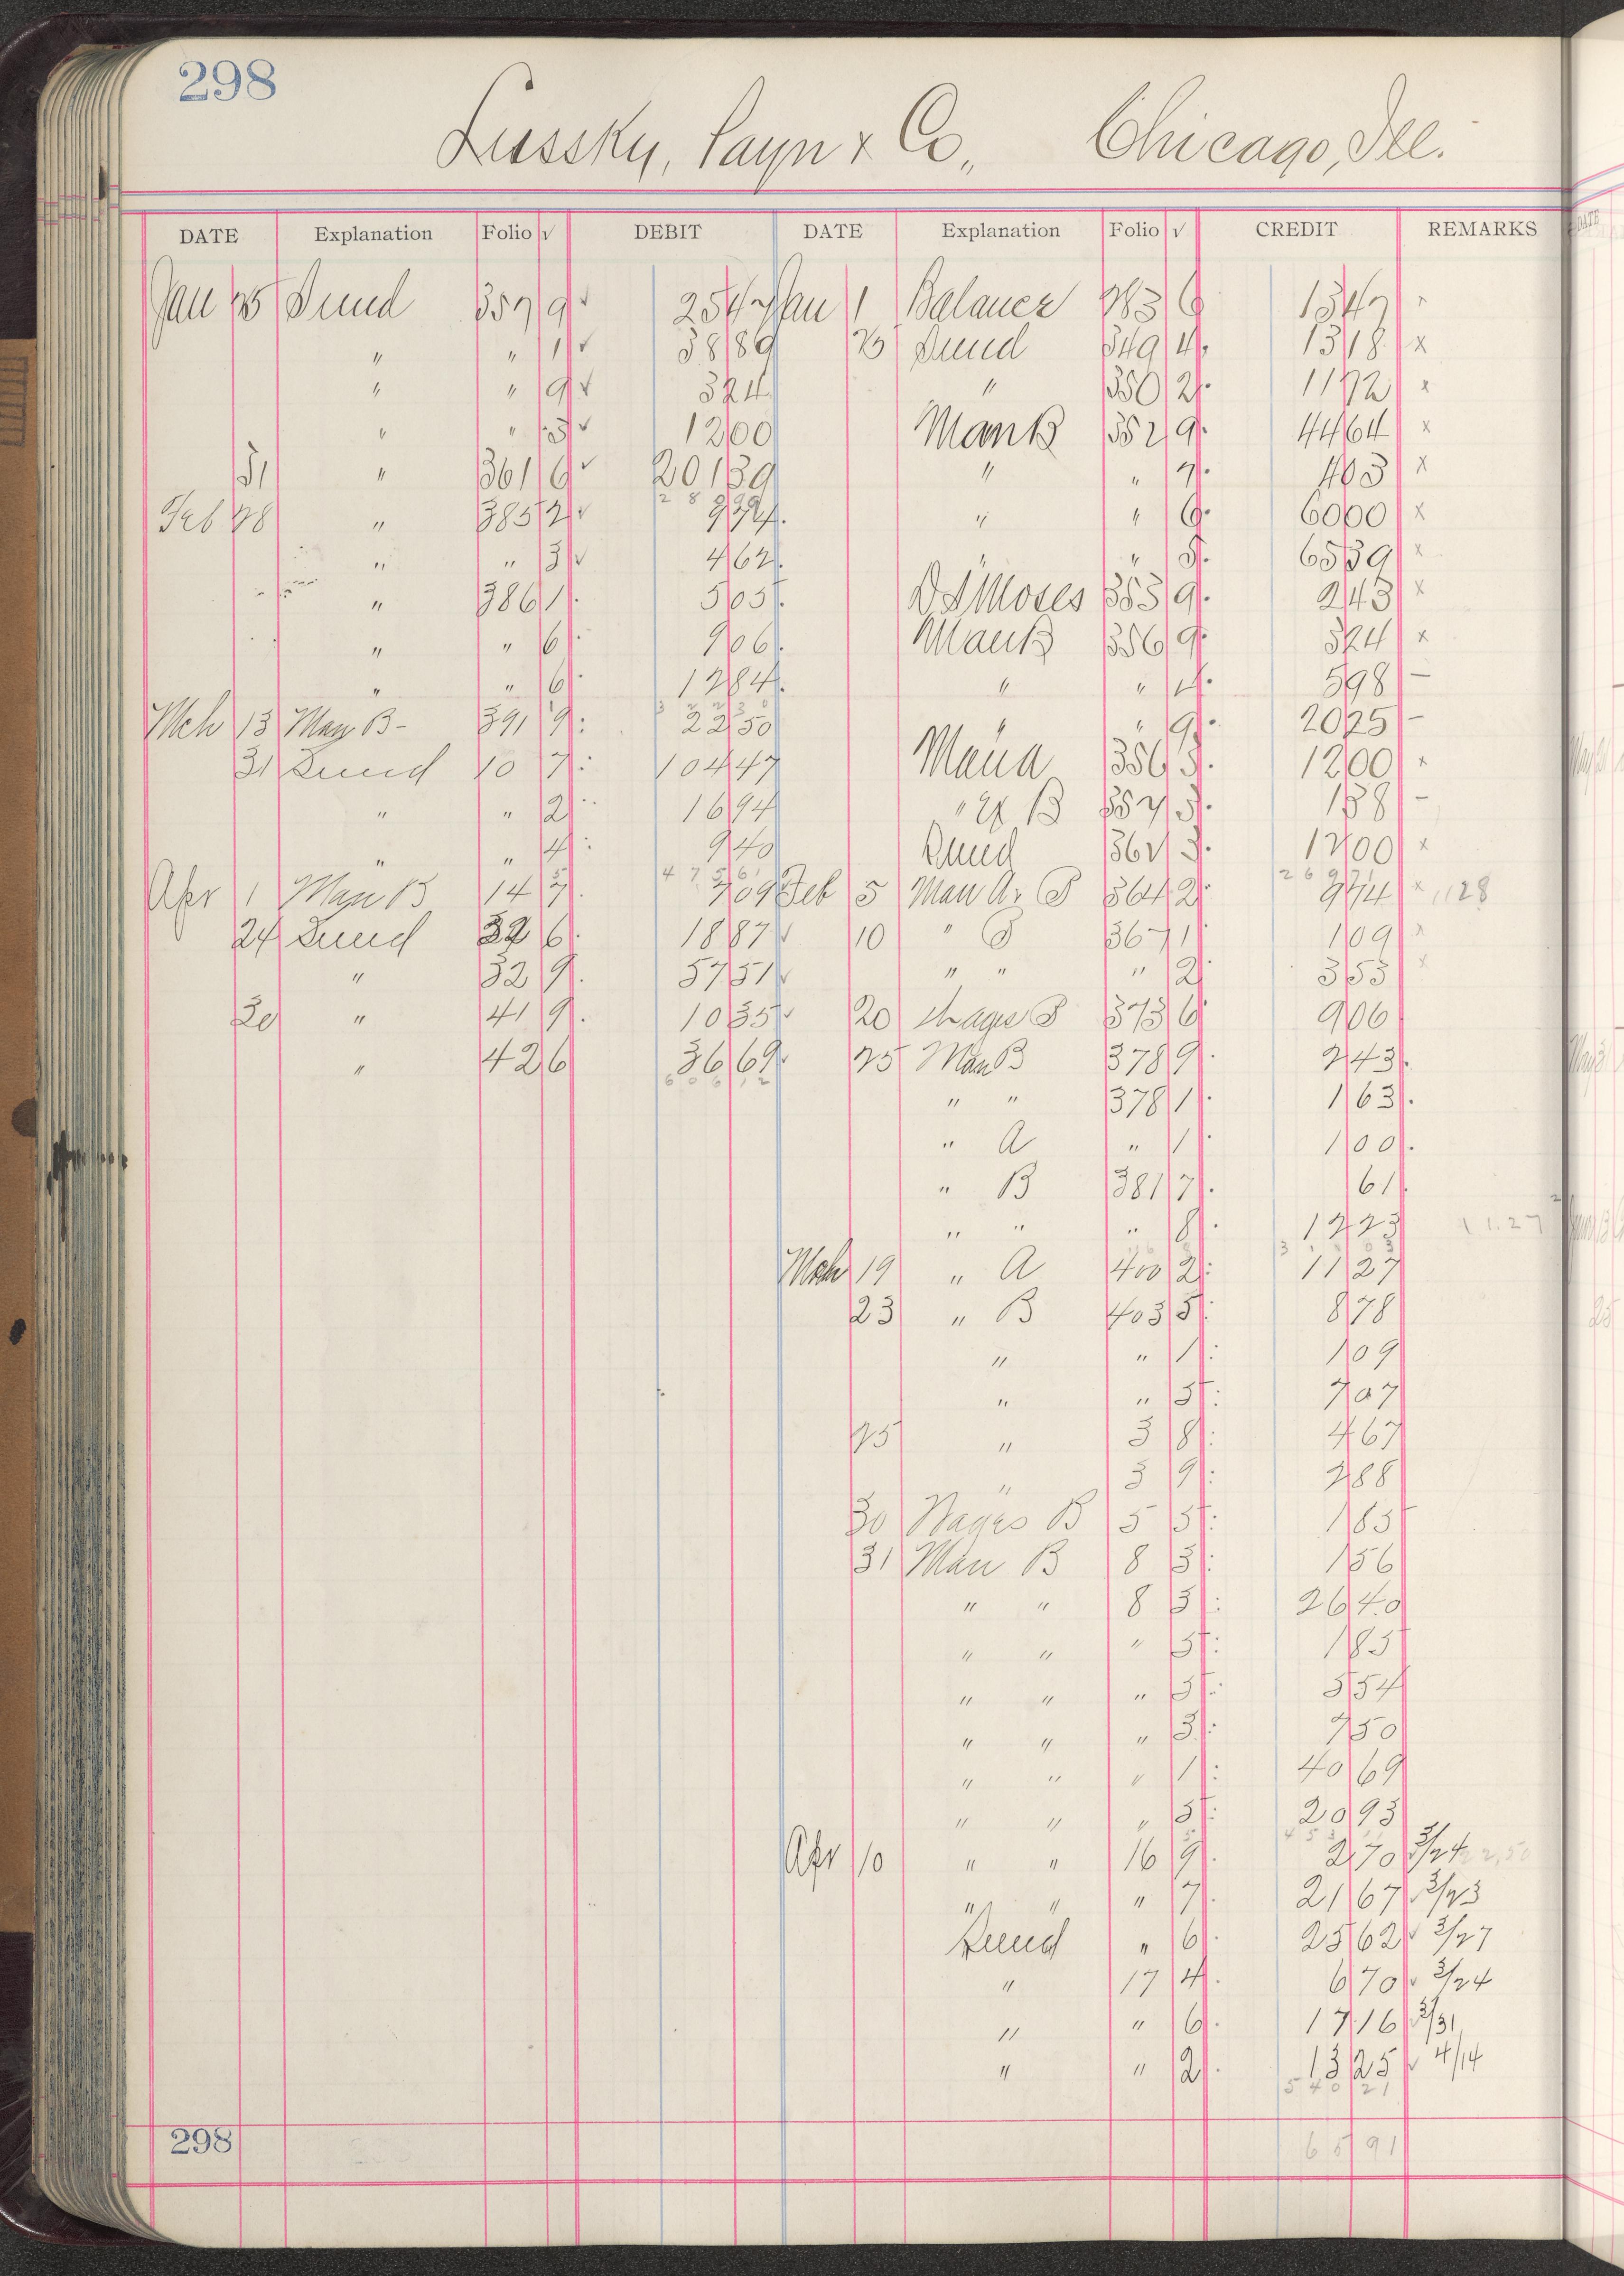 298
Lussky, Payn & Co., Chicago, Ill.
DATE Explanation Folio √ DEBIT DATE Explanation Folio √ CREDIT REMARKS
Jan 25 Sund 357 9 √ 2547 Jan 1 Balance 283 6 1347
" " 1 √ 3889 25 Sund 349 4 1318 x
" " 9 √ 324 " 350 2 1172 x
" " 3 √ 1200 Man B 352 9 4464 x
31 " 361 6 √ 20139 " " 7 403 x
Feb 28 " 385 2 √ 934 " " 6 6000 x
" " 3 √ 462 " " 8 6539 x
" 386 1 505 D S Moses 353 9 243 x
" " 6 906 Man B 356 9 324 x
" " 6 1284 " " 4 598 –
Mch 13 Man B - 391 9 2250 " " 9 2025 –
31 Sund 10 7 10447 Man A 356 3 1200 x
" " 2 1694 " B 357 3 188 –
" " 4 940 Sund 362 3 1200 x
Apr 1 Man B 14 7 709 Feb 5 Man A 364 2 974 x 1128
24 Sund 32 6 1887 √ 10 " 367 1 109 x
" 32 9 5751 √ " " " 2 353 x
30 " 41 9 1035 √ 20 Wages 373 6 906
" 42 6 3669 √ 25 Man B 378 9 243
" " 378 1 163
" A " 1 100
" B 381 7 61
" " " 8 1223 11.27
Mch 19 " A 400 2 1127
23 " B 403 5 878
" " 1 109
" " 5 707
25 " 3 8 467
" 3 9 288
30 Wages B 5 5 185
31 Man B 8 3 156
" " 8 3 2640
" " " 5 185
" " " 5 554
" " " 3 750
" " " 1 4069
" " " 5 2093
Apr 10 " " 16 9 270 3/24 22.50
" " " 7 2167 √ 3/23
Sund " 6 2562 √ 3/27
" 17 4 670 √ 3/24
" " 6 1716 √ 3/31
" " 2 1325 √ 4/14
54021
298 6591